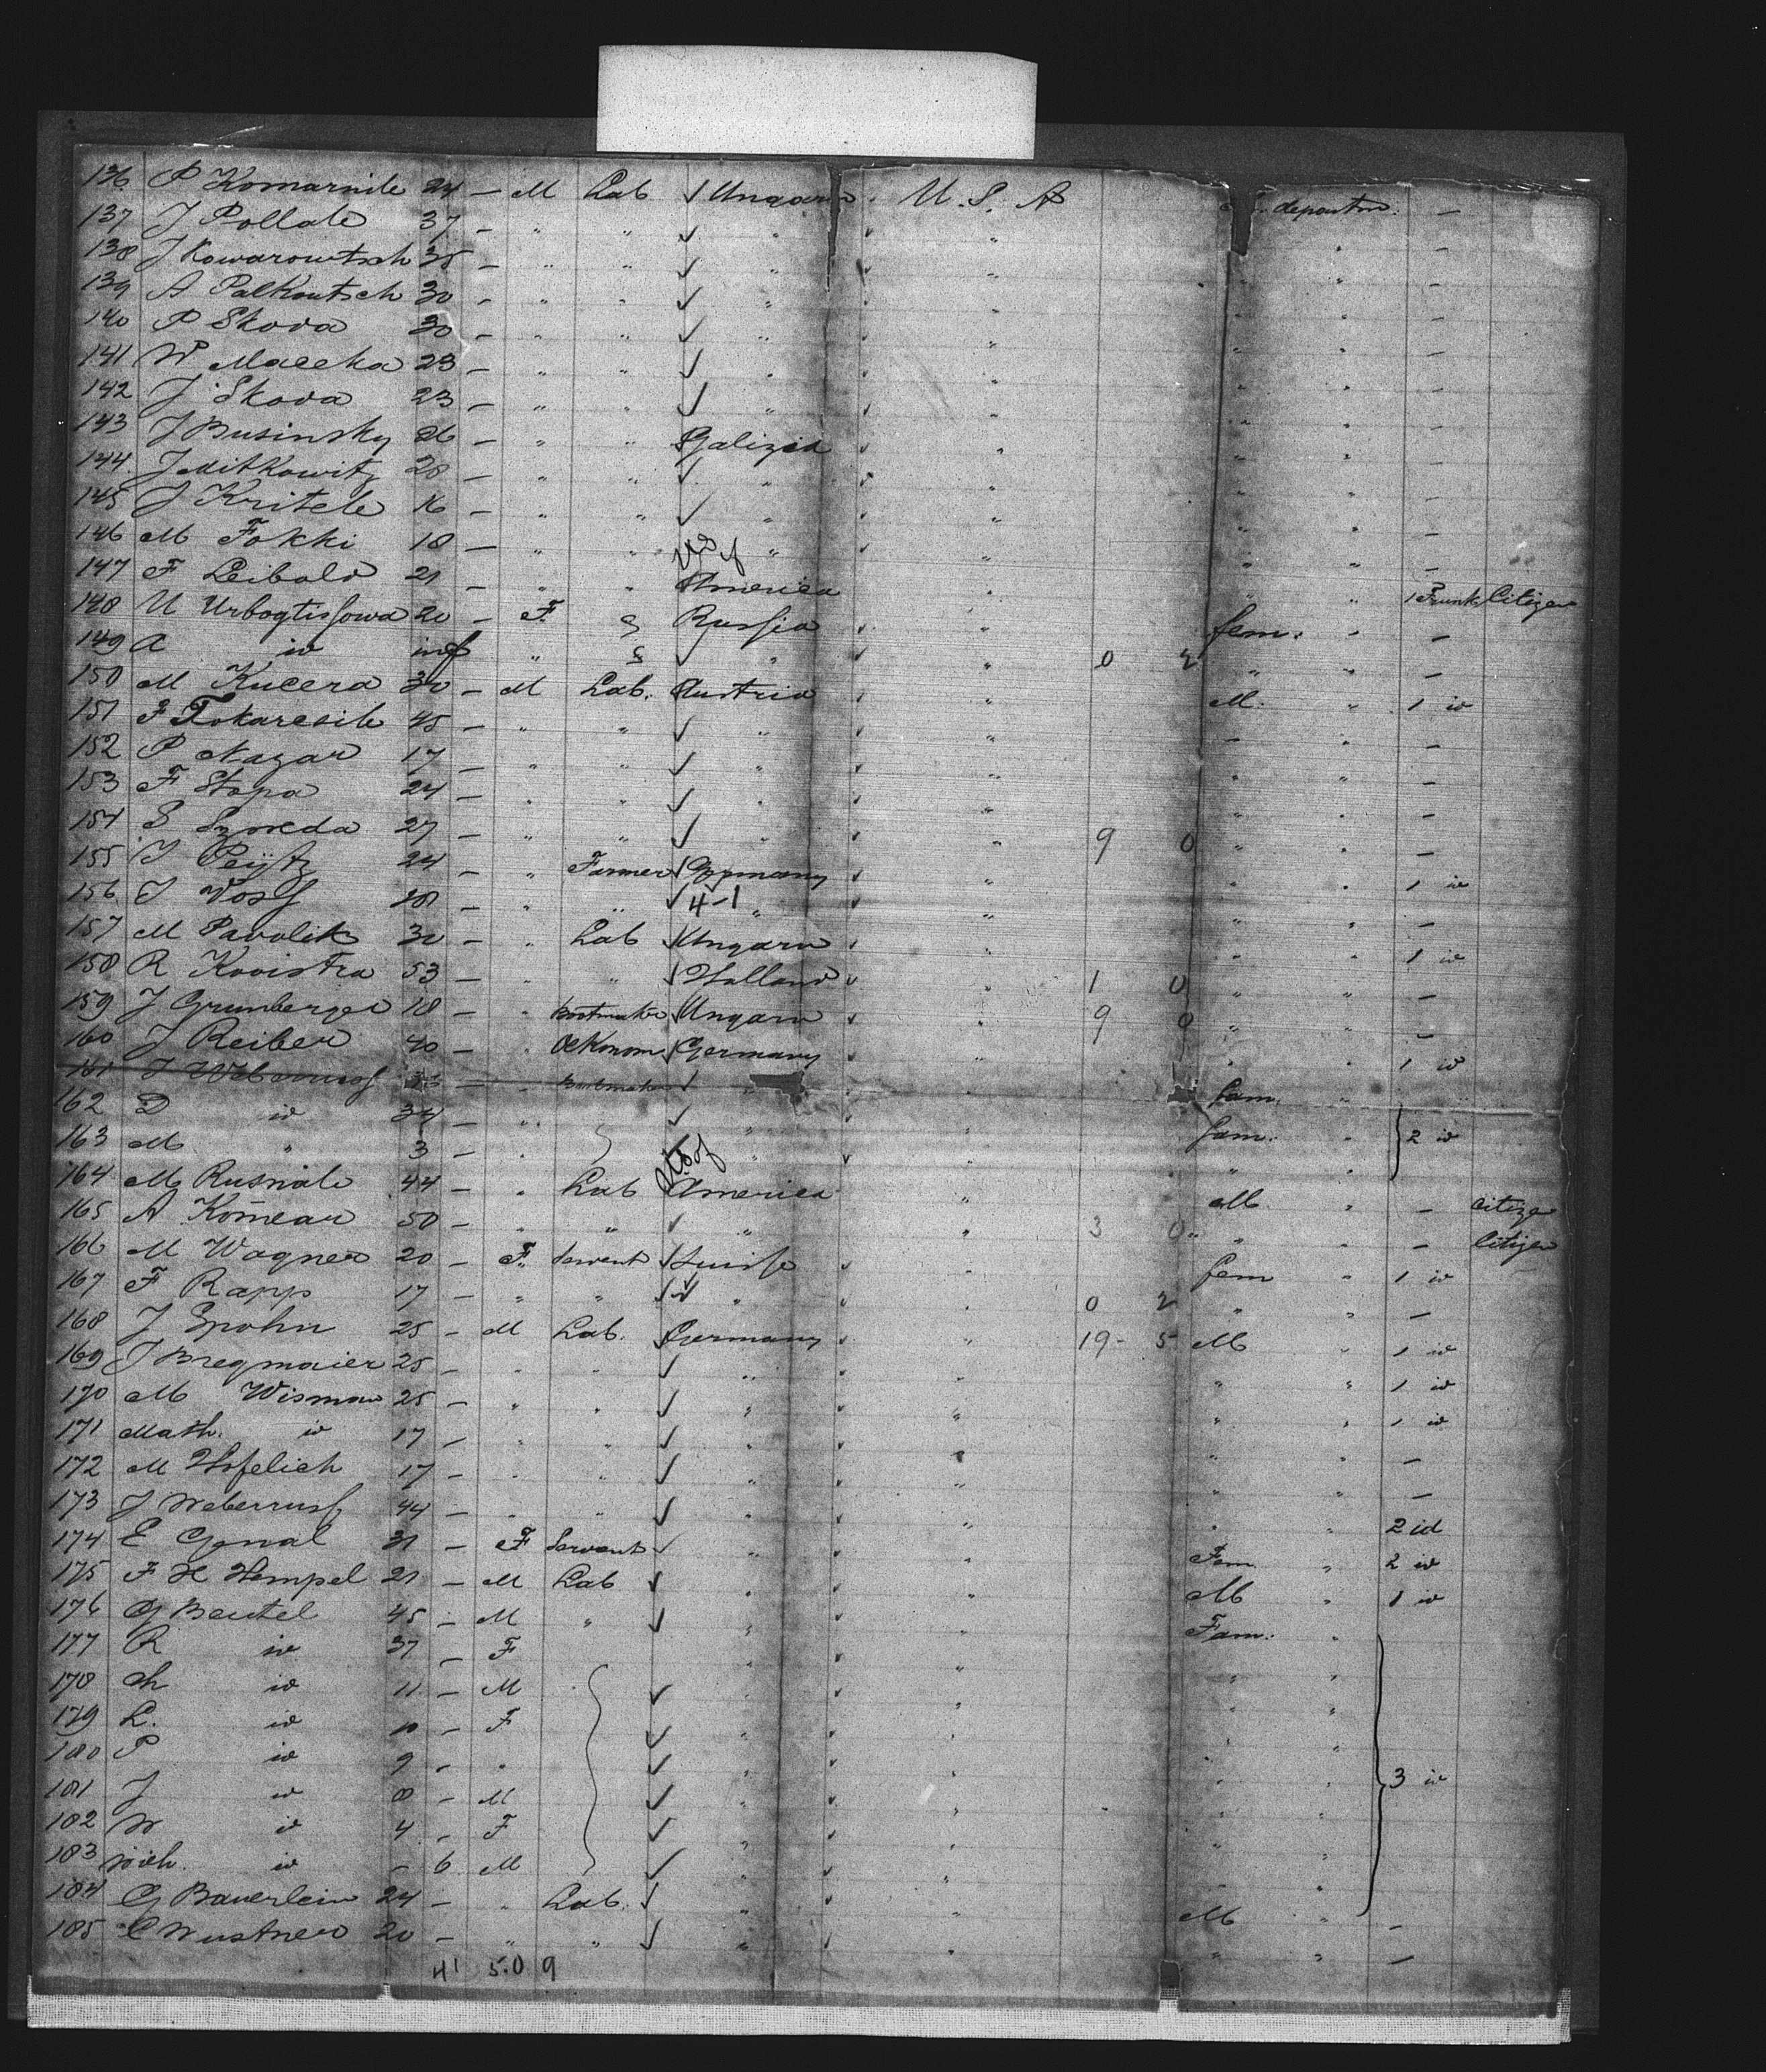 136 P Komarnik 24 — M Lab ✓ Ungarn U. S. A departm. —
137 J Pollak 37 — " " ✓ " " " —
138 J Kowarowtsch 35 — " " ✓ " " " " —
139 A Palkowtsch 30 — " " ✓ " " " " —
140 P Skova 30 — " " ✓ " " " " —
141 W Maceka 23 — " " ✓ " " " " —
142 J Skova 23 — " " ✓ " " " " —
143 J Businsky 26 — " " Galizia " " " —
144 J Mitkowitz 28 — " " ✓ " " " " —
145 J Kritek 16 — " " ✓ " " " " —
146 M Fokki 18 — " " " " " " —
147 F Leibold 21 — " " U S of America " " 1 Trunk Citizen
148 U Urbogtissowa 20 — F Russia " fem. " —
149 A id inf " ✓ " " 0 2 " " —
150 M Kucera 30 — M Lab. Austria " M. " 1 id
151 F Tokarcsik 45 — " " ✓ " " " " —
152 P Nazar 17 — " " ✓ " " " " —
153 F Stopa 24 — " " ✓ " " " " —
154 S Szoreda 27 — " " ✓ " " 9 0 " " —
155 J 24 — " Farmer ✓ Germany " " " 1 id
156 J Voss 18 — " " ✓ 4-1 " " " " —
157 M Pavolik 30 — " Lab ✓ Ungarn " " " 1 id
158 R Kooistra 53 — " " ✓ Holland " 1 0 " " —
159 J Grunberger 18 — " Bootmaker ✓ Ungarn " 9 0 " " —
160 J Reiber 40 — " Oekonom ✓ Germany " " " 1 id
161 J 33 — " Bootmaker ✓ " fam. "
162 D id 34 — " ✓ " fam. " 2 id
163 M " 3 — " " " "
164 M Rusnak 44 — " Lab U S of America " M " — Citizen
165 A Komear 50 — " " ✓ " " 3 0 " " — Citizen
166 M Wagner 20 — F Servent ✓ Suisse " fem " 1 id
167 F Rapp 17 — " " ✓ " " 0 2 " " —
168 J Spohn 25 — M Lab. Germany " 19 - 5 M " 1 id
169 J Bregmaier 25 — " " ✓ " " " " 1 id
170 M Wisman 25 — " " ✓ " " " " 1 id
171 Math. id 17 — " " ✓ " " " " —
172 M Hofelich 17 — " " ✓ " " " " —
173 J Weberruss 44 — " " ✓ " " " " 2 id
174 E Gonal 31 — F Servent ✓ " " Fem " 2 id
175 F H Hempel 21 — M Lab ✓ " " M " 1 id
176 G Beutel 45 — M " ✓ " " Fam. "
177 R id 37 — F " " " "
178 Ch id 11 — M ✓ " " " "
179 L. id 10 — F ✓ " " " "
180 P id 9 — " ✓ " " " "
181 J id 8 — M ✓ " " " " 3 id
182 W id 4 — F ✓ " " " "
183 Wilh. id — 6 M ✓ " " " "
184 G Bauerlein 24 — " Lab. ✓ " " M " —
185 C Wustner 20 — " " ✓ " " " " —
41 5.0 9